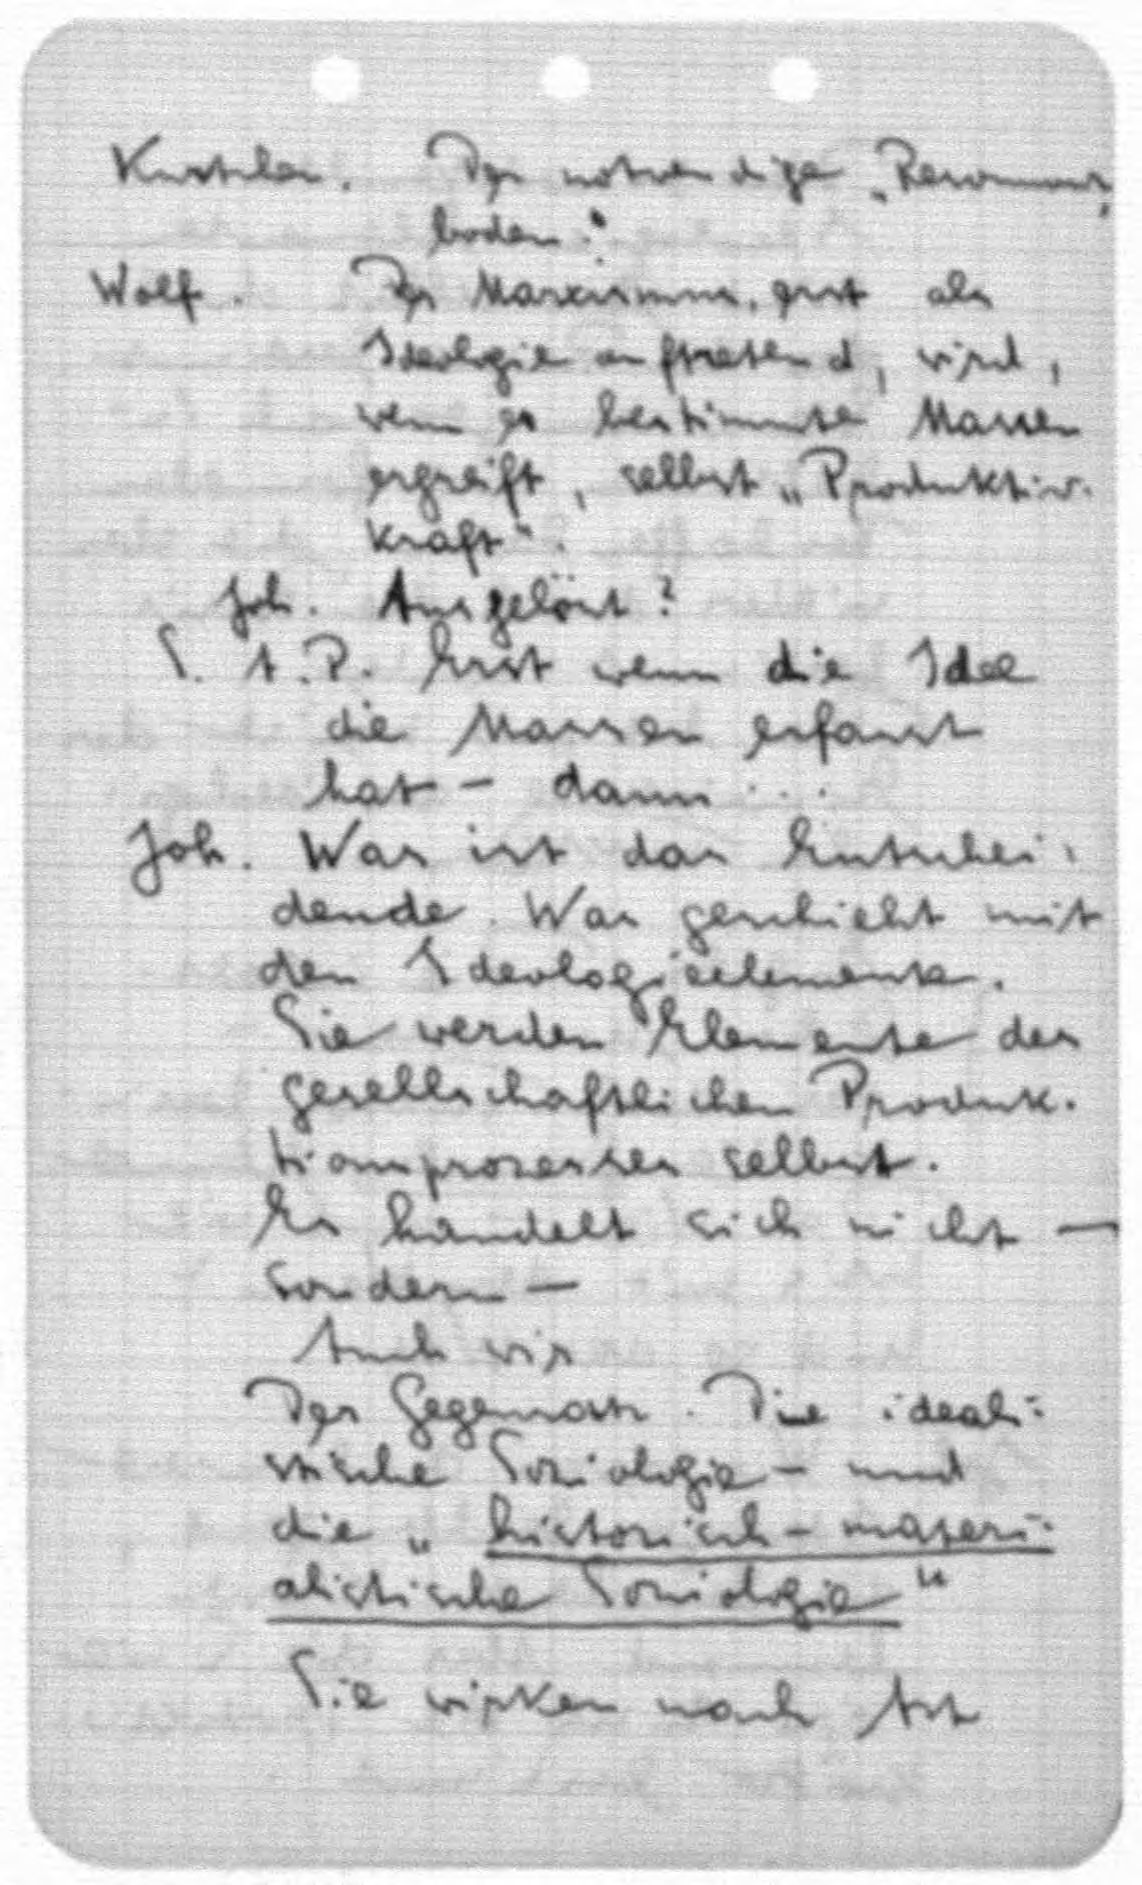 Der notwendige „Resonanz-
boden“.
Wolf. Der Marxismus, erst als
Ideologie auftretend, wird,
wenn er bestimmte Massen
ergreift, selbst „Produktiv-
kraft“.
Joh. Ausgelöst?
S. A. P. Erst wenn die Idee
die Massen erfasst
hat – dann ...
Joh. Was ist das Entschei-
dende. Was geschieht mit
den Ideologieelementen.
Sie werden Elemente des
gesellschaftlichen Produk-
tionsprozesses selbst.
Es handelt sich nicht –
sondern –
Auch wir
Der Gegensatz. Die ideali-
stische Soziologie – und
die „historisch-materi-
alistische Soziologie“
Sie wirken nach Art